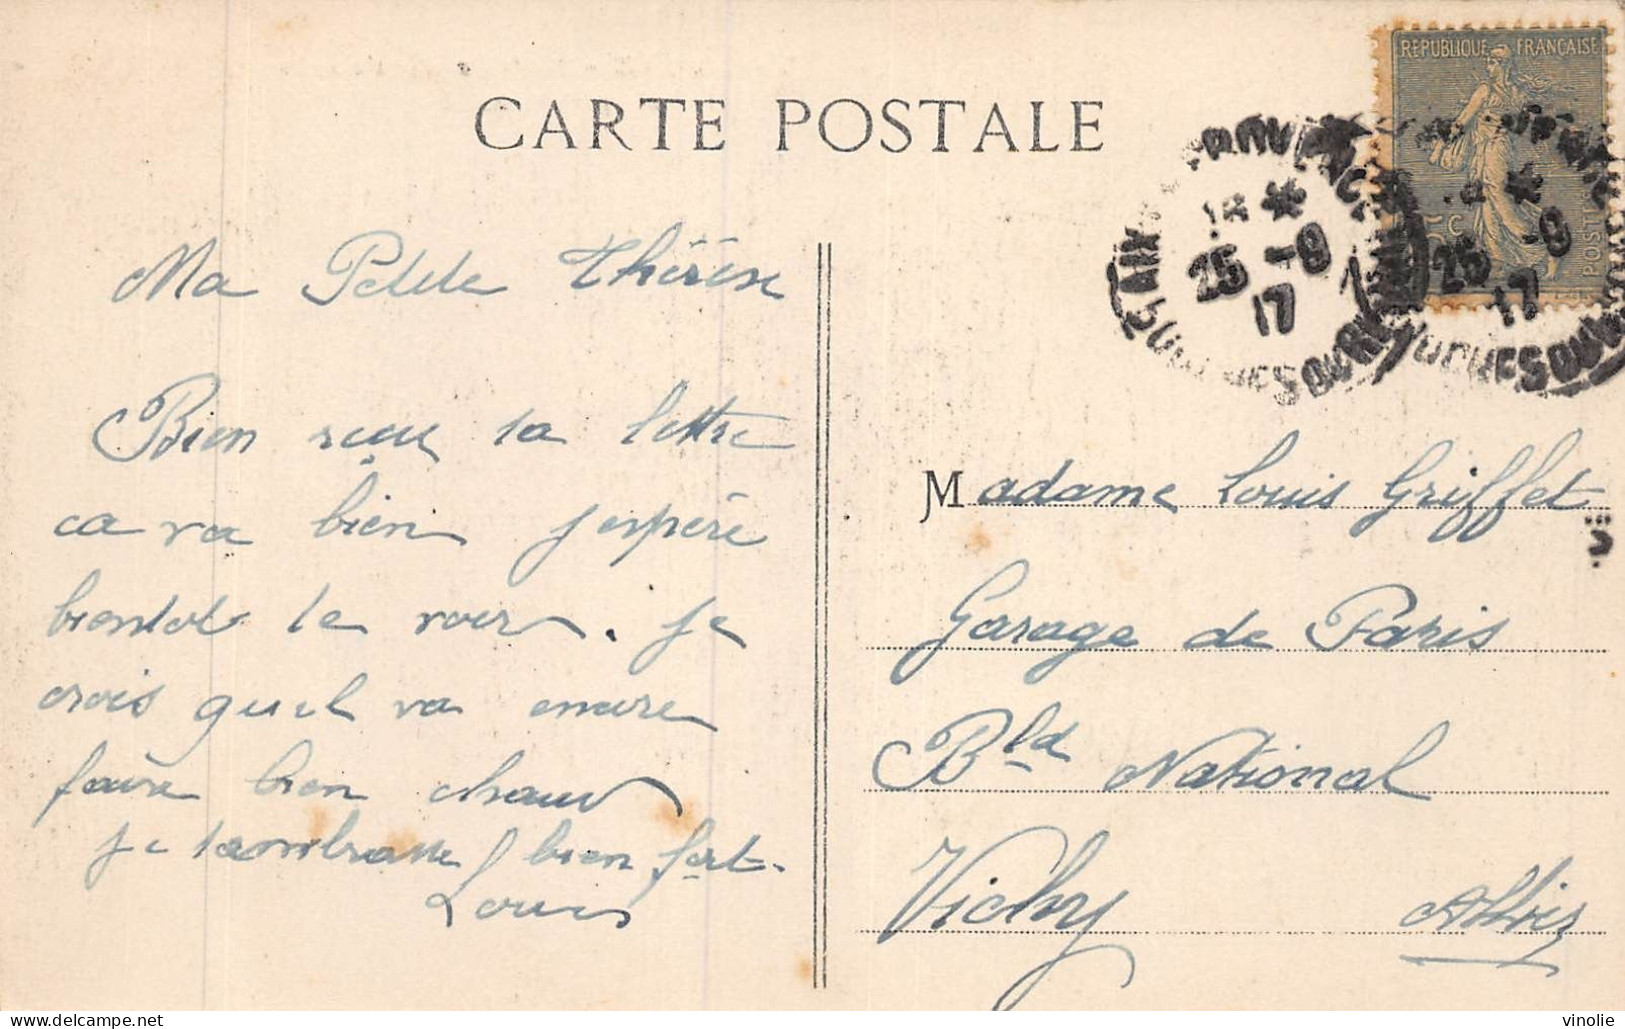 CARTE POSTALE
REPUBLIQUE FRANÇAISE
POSTES
AIX PROVENCE
25 -9
17
BOUCHES DU RHONE
25 -9
17
Ma Petite Thérèse
Bien reçu ta lettre
ca va bien j'espère
bientot te voir. Je
crois qu'il va encore
faire bien chaud
je t'embrasse bien fort.
Louis
Madame Louis Griffet
Garage de Paris
Bld National
Vichy Allier
vinolie